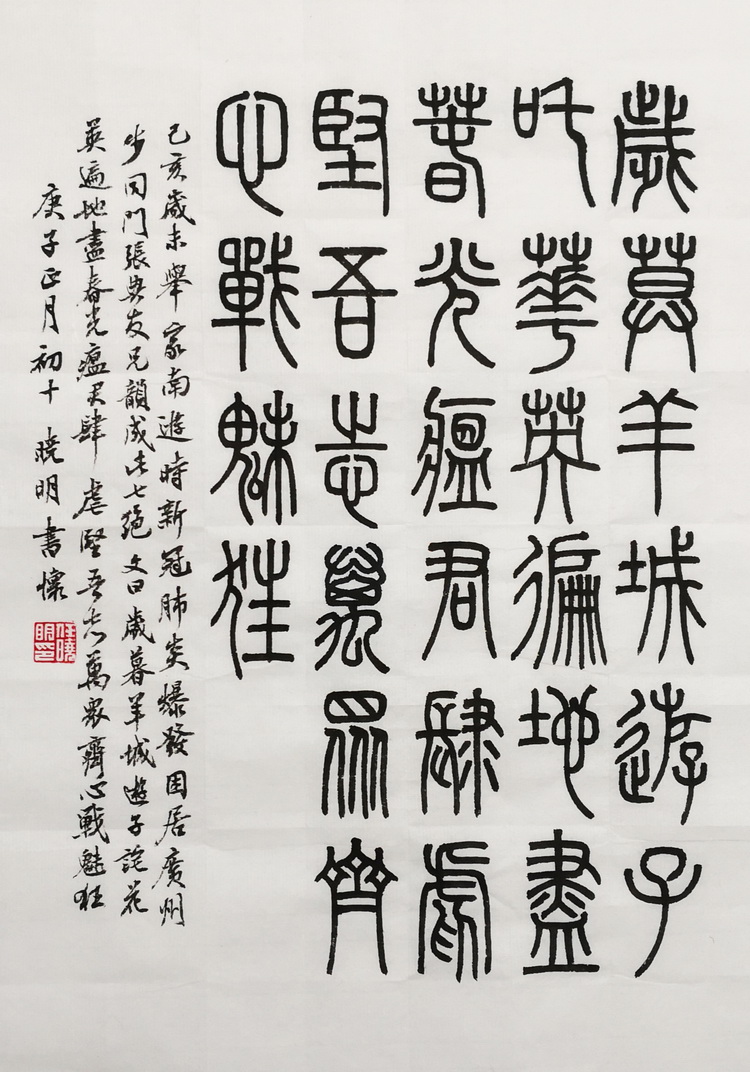 歲莫羊城遊子
吒華英徧地盡
春光瘟君肆虐
堅吾志萬眾齊
心戰魅狂
己亥歲末舉家南遊時新冠肺炎爆發困居廣州
步同門張典友兄韻成此七絕文曰歲暮羊城遊子詫花
英遍地盡春光瘟君肆虐堅吾志萬眾齊心戰魅狂
庚子正月初十曉明書懷
任曉明印